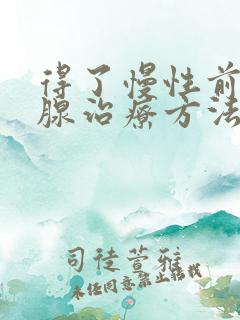 得了慢性前
腺治疗方法
司徒萱雅
未经同意禁止转载